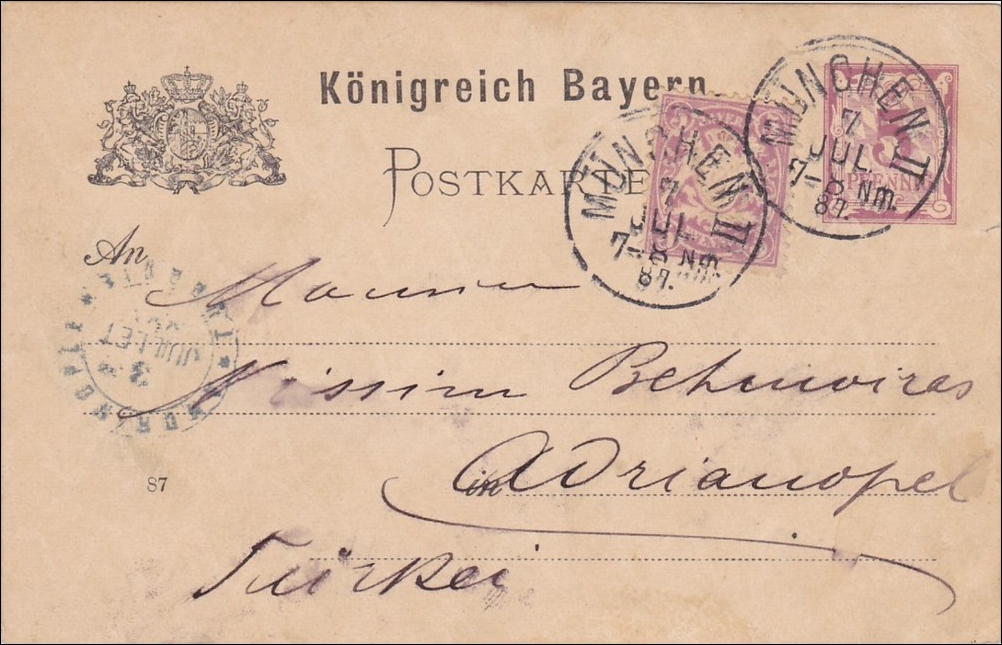 Königreich Bayern.
POSTKARTE
MÜNCHEN II
7
JUL
7-8 NM.
87.
MÜNCHEN II
7
JUL
7-8 NM.
87.
PFENNIG
An
Nissim
in Adrianopel
Türkei
JUILLET
87